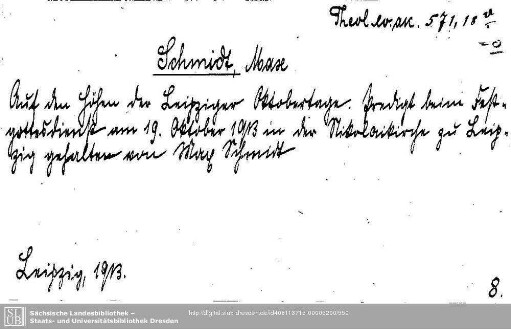 Theol. ev. asc. 571, 18
Schmidt, Max
Auf den Höhen der Leipziger Oktobertage. Predigt beim Fest-
gottesdienst am 19. Oktober 1913 in der Nikolaikirche zu Leip-
zig gehalten von Max Schmidt
Leipzig, 1913.
8.
SLUB
Sächsische Landesbibliothek –
Staats- und Universitätsbibliothek Dresden